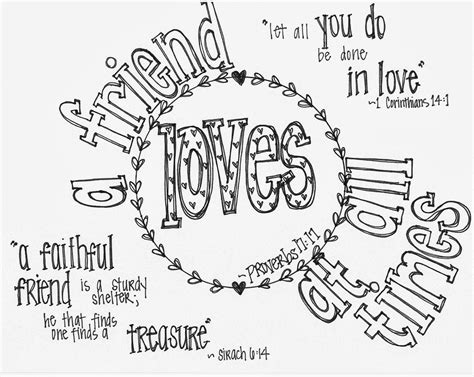 a friend
loves
at all
times
~Proverbs 17:17
"let all you do
be done
in love"
~1 Corinthians 14:1
"a faithful
friend is a sturdy
shelter;
he that finds
one finds a
treasure"
~ Sirach 6:14